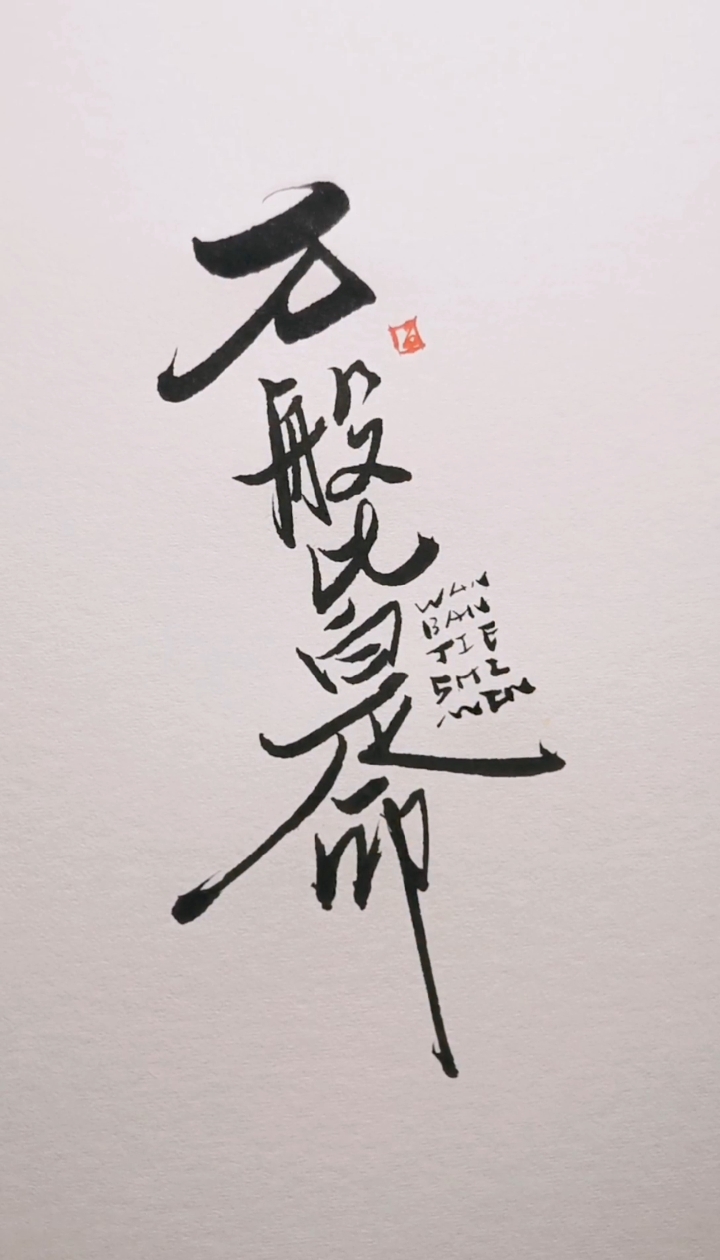 万般皆是命
WAN
BAN
JIE
SHI
MIN